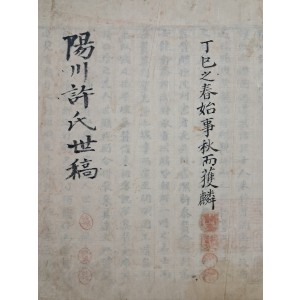 丁巳之春始事秋而獲麟
陽川許氏世稿